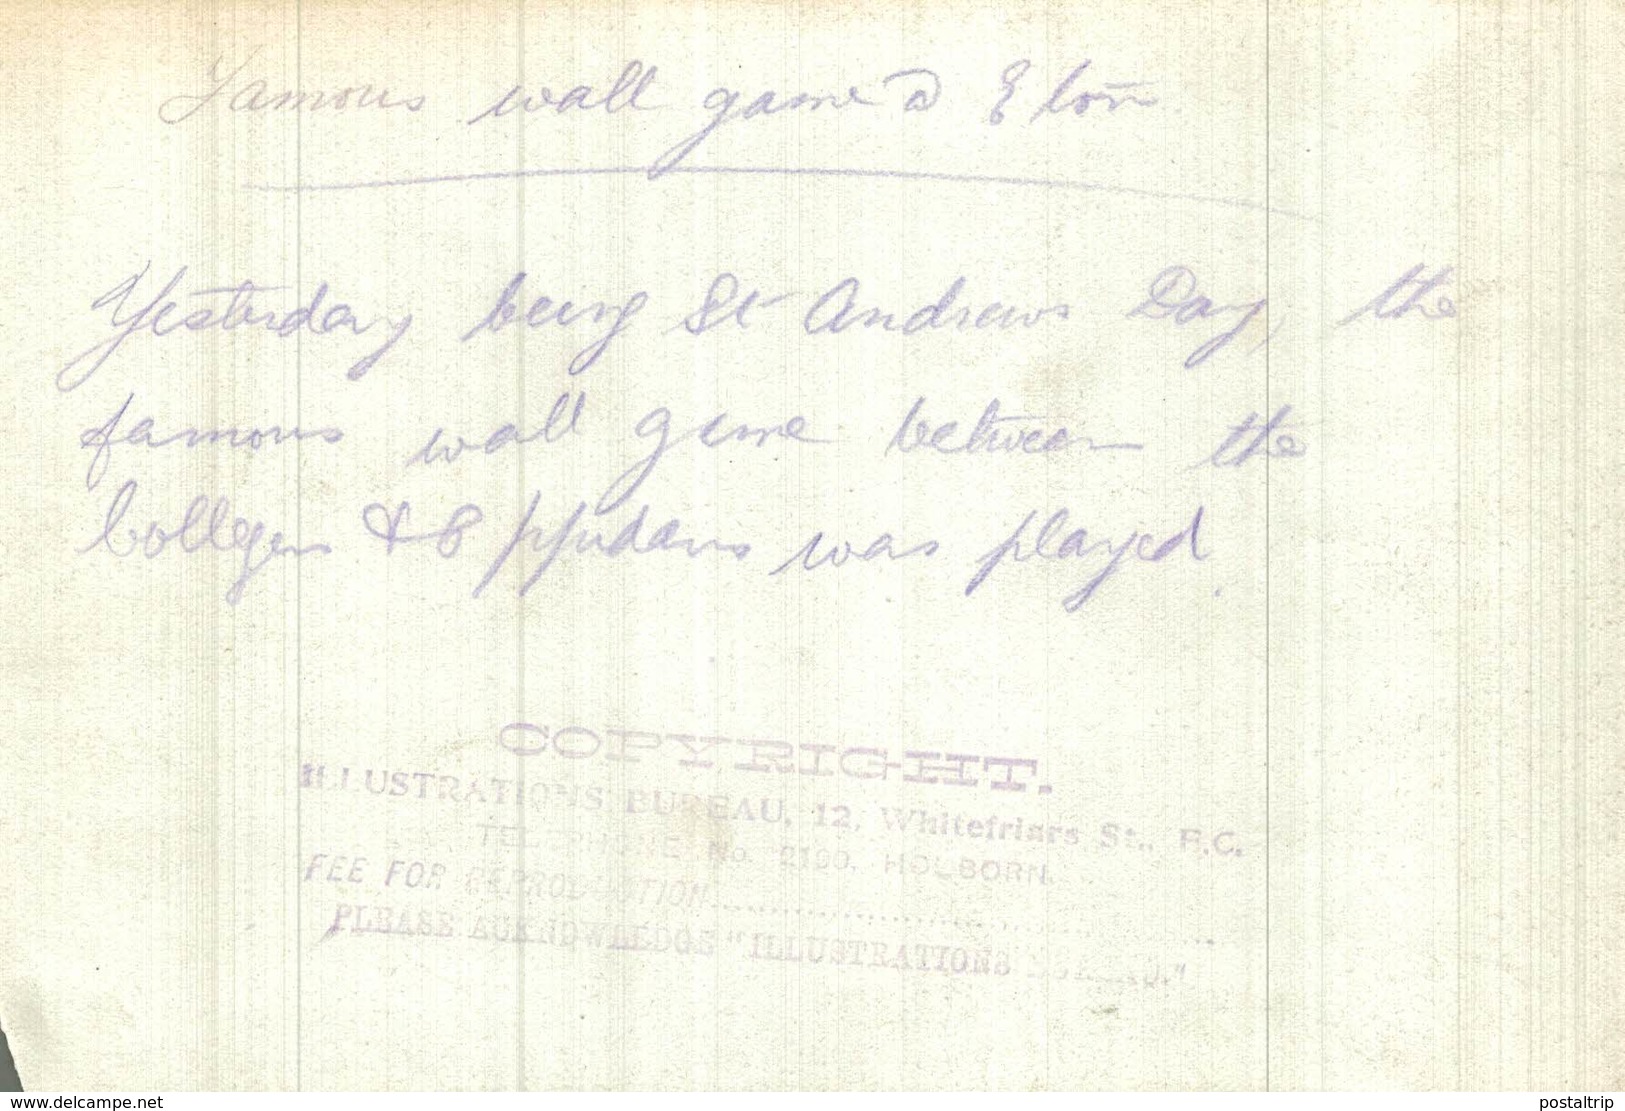 Famous wall game @ Eton
Yesterday being St Andrews Day, the
famous wall game between the
Collegers & Oppidans was played.
COPYRIGHT.
ILLUSTRATIONS BUREAU, 12, Whitefriars St., E.C.
TELEPHONE No. 2190, HOLBORN.
FEE FOR REPRODUCTION
PLEASE ACKNOWLEDGE "ILLUSTRATIONS BUREAU."
www.delcampe.net
postaltrip